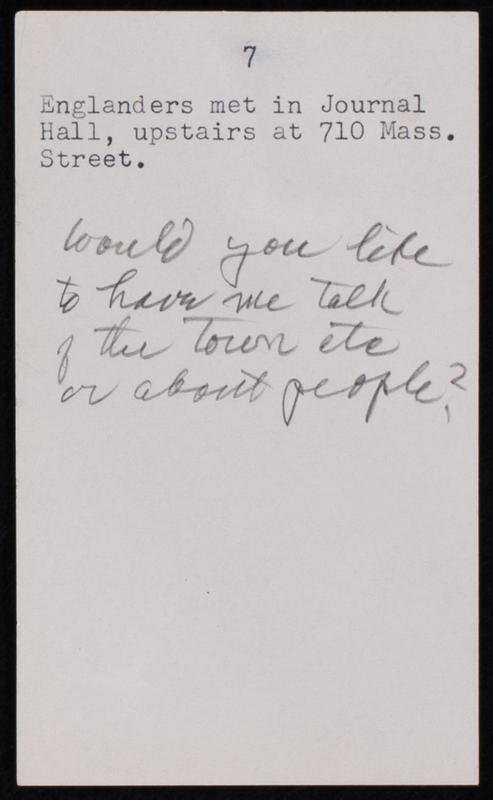 7
Englanders met in Journal
Hall, upstairs at 710 Mass.
Street.
Would you like
to have me talk
of the town etc
or about people?